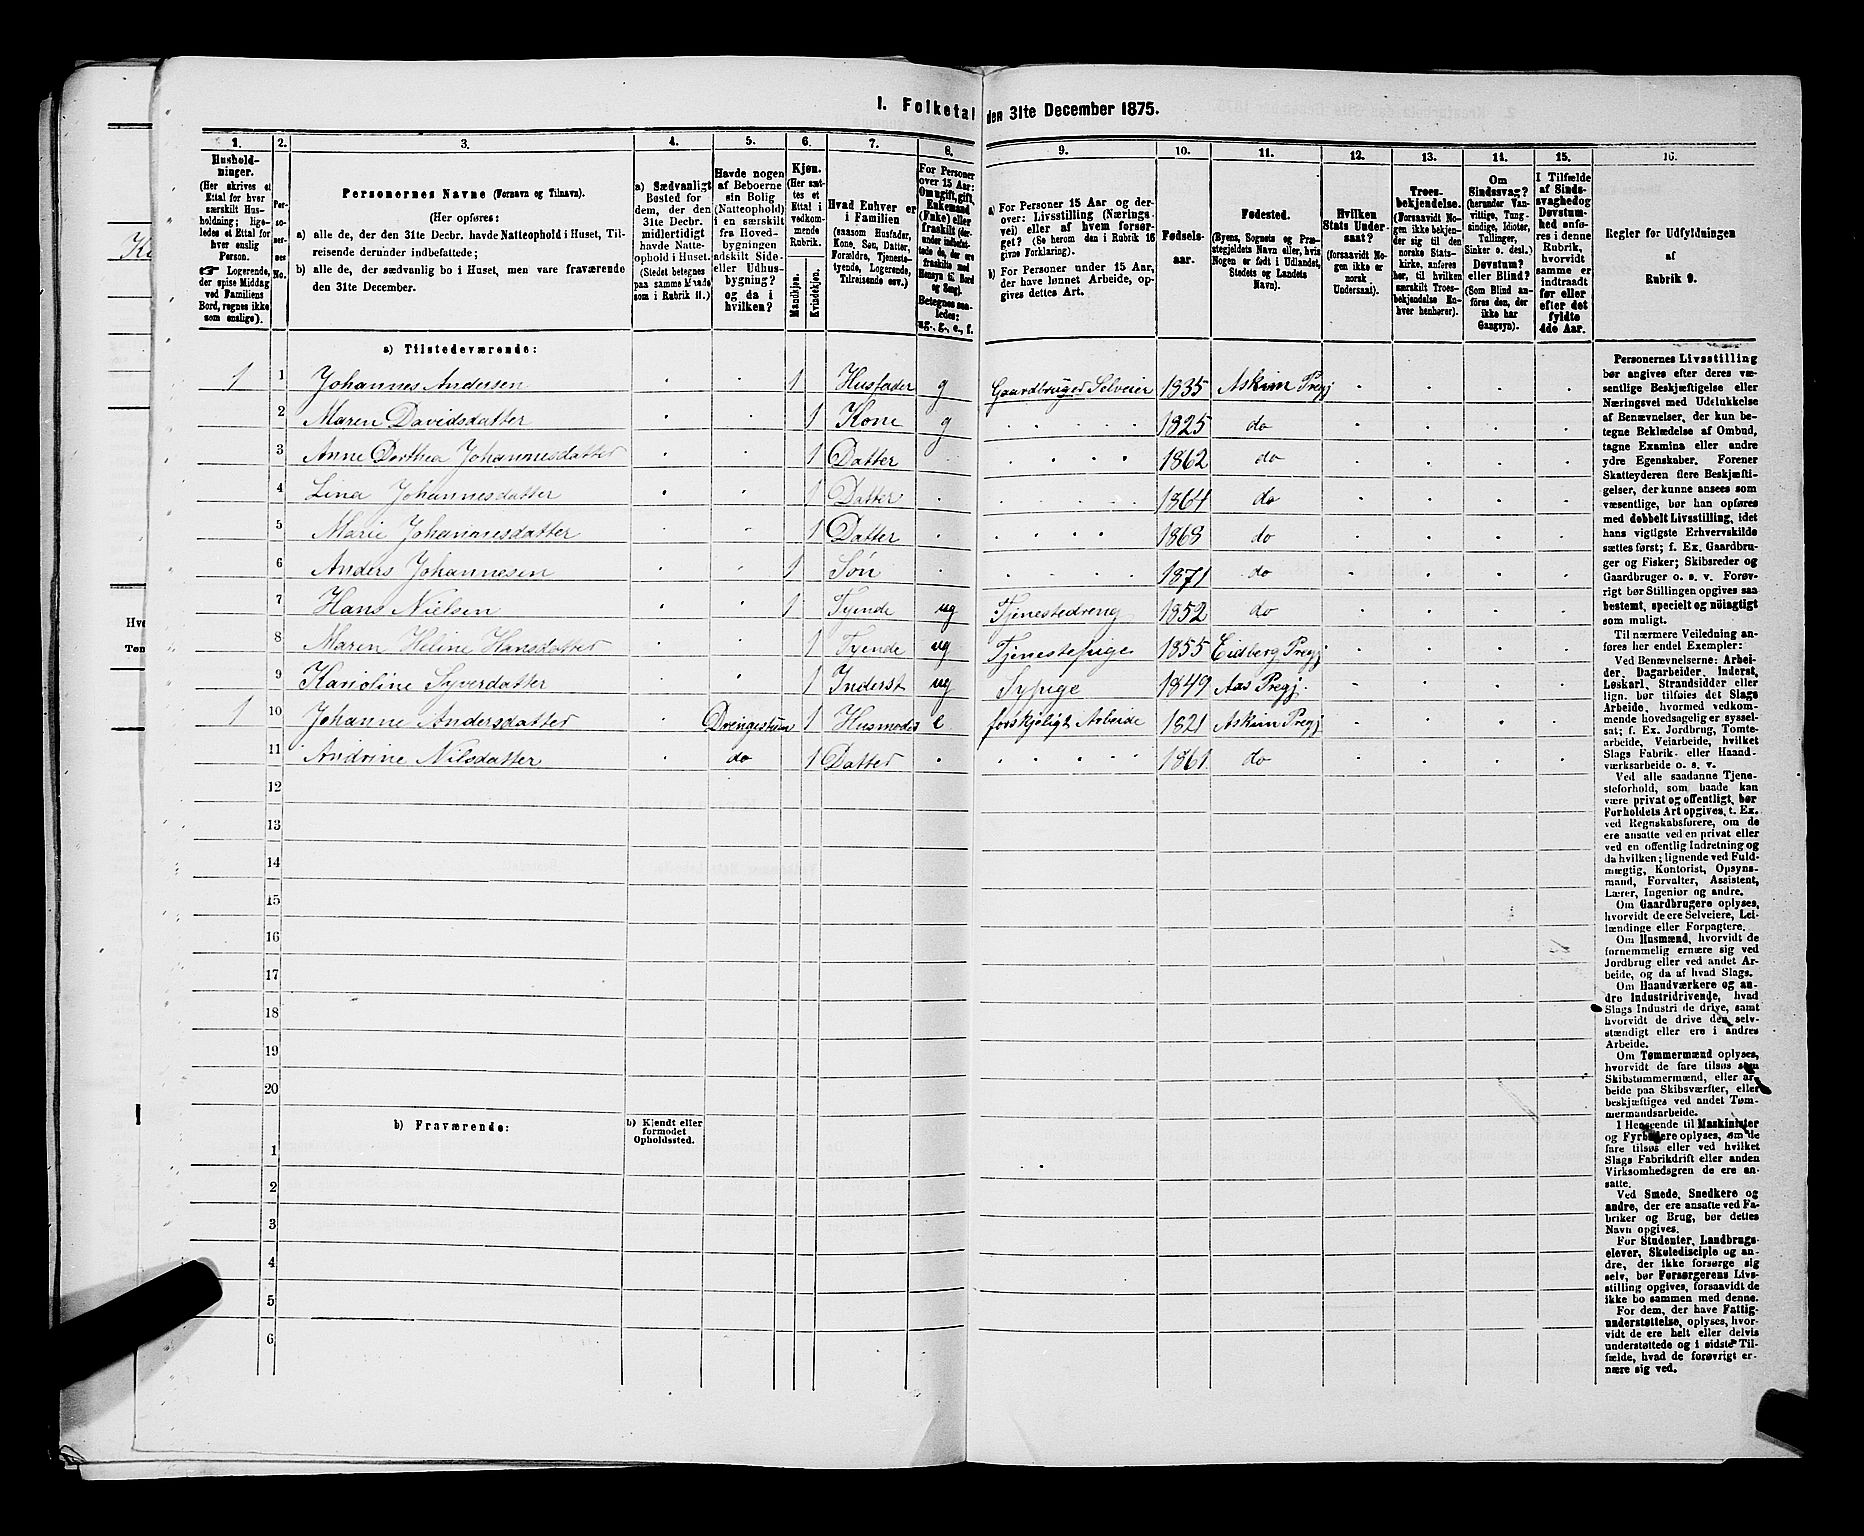 I. Folketal den 31te December 1875.
1. 2. 3. 4. 5. 6. 7. 8. 9. 10. 11. 12. 13. 14. 15. 16.
Hushold-
ninger.
(Her skrives et
Ettal for hver
særskilt Hus-
holdning; lige-
ledes et Ettal for
hver enslig
Person.
☞ Logerende,
der spise Middag
ved Familiens
Bord, regnes ikke
som enslige).
Per-
so-
ner-
nes
No.
Personernes Navne (Fornavn og Tilnavn).
(Her opføres:
a) alle de, der den 31te Decbr. havde Natteophold i Huset, Til-
reisende derunder indbefattede;
b) alle de, der sædvanlig bo i Huset, men vare fraværende
den 31te December.
a) Sædvanligt
Bosted for
dem, der den
31te Decbr.
midlertidigt
havde Natte-
ophold i Huset.
(Stedet betegnes
paa samme Maade
som i Rubrik 11.)
Havde nogen
af Beboerne
sin Bolig
(Natteophold)
i en særskilt
fra Hoved-
bygningen
adskilt Side-
eller Udhus-
bygning?
og da i
hvilken?
Kjøn.
(Her sæt-
tes et
Ettal i
vedkom-
mende
Rubrik.
Mandkjøn.
Kvindekjøn.
Hvad Enhver er
i Familien
(saasom Husfader,
Kone, Søn, Datter,
Forældre, Tjeneste-
tyende, Logerende,
Tilreisende osv.)
For Personer
over 15 Aar:
Om ugift, gift,
Enkemand
(Enke) eller
fraskilt (der-
under indbefat-
tede de, der ere
fraskilte med
Hensyn til Bord
og Seng).
Betegnes saa-
ledes:
ug., g., e., f.
a) For Personer 15 Aar og der-
over: Livsstilling (Nærings-
vei) eller af hvem forsør-
get? (Se herom den i Rubrik 16
givne Forklaring).
b) For Personer under 15 Aar,
der have lønnet Arbeide, op-
gives dettes Art.
Fødsels-
aar.
Fødested.
(Byens, Sognets og Præ-
stegjeldets Navn eller, hvis
Nogen er født i Udlandet,
Stedets og Landets
Navn).
Hvilken
Stats Under-
saat?
(forsaavidt No-
gen ikke er
norsk
Undersaat).
Troes-
bekjendelse.
(Forsaavidt No-
gen ikke bekjen-
der sig til den
norske Stats-
kirke, anføres
her, til hvilken
særskilt Troes-
bekjendelse En-
hver henhører).
Om
Sindssvag?
(herunder Van-
vittige, Tung-
sindige, Idioter,
Tullinger,
Sinker o. desl.)
Døvstum?
eller Blind?
(Som Blind an-
føres den, der
ikke har
Gangsyn).
I Tilfælde
af Sinds-
svaghed og
Døvstum-
hed anfø-
res i denne
Rubrik,
hvorvidt
samme er
indtraadt
før eller
efter det
fyldte
4de Aar.
Regler for Udfyldningen
af
Rubrik 9.
a) Tilstedeværende:
1 1 Johannes Andersen 1 Husfader g Gaardbruger Selveier 1835 Askim Prgj
2 Maren Davidsdatter 1 Kone g 1825 do
3 Anne Dorthea Johannesdatter 1 Datter 1862 do
4 Lina Johannesdatter 1 Datter 1864 do
5 Marie Johannesdatter 1 Datter 1868 do
6 Anders Johannesen 1 Søn 1871 do
7 Hans Nielsen 1 Tyende ug Tjenestedreng 1852 do
8 Maren Heline Hansdatter 1 Tyende ug Tjenestepige 1855 Eidberg Prgj
9 Karoline Syverdatter 1 Inderst ug Sypige 1849 Aas Prgj.
1 10 Johanne Andersdatter Drengestuen 1 Husmoder e forskjeligt Arbeide 1821 Askim Prgj
11 Andrine Nilsdatter do 1 Datter 1861 do
12
13
14
15
16
17
18
19
20
b) Fraværende:
b) Kjendt eller
formodet
Opholdssted.
1
2
3
4
5
6
Personernes Livsstilling
bør angives efter deres væ-
sentlige Beskjæftigelse eller
Næringsvei med Udelukkelse
af Benævnelser, der kun be-
tegne Beklædelse af Ombud,
tagne Examina eller andre
ydre Egenskaber. Forener
Skatteyderen flere Beskjæfti-
gelser, der kunne ansees som
væsentlige, bør han opføres
med dobbelt Livsstilling, idet
hans vigtigste Erhvervskilde
sættes først; f. Ex. Gaardbru-
ger og Fisker; Skibsreder og
Gaardbruger o. s. v. Forøv-
rigt bør Stillingen opgives saa
bestemt, specielt og nöiagtigt
som muligt.
Til nærmere Veiledning an-
føres her endel Exempler:
Ved Benævnelserne: Arbei-
der, Dagarbeider, Inderst,
Løskarl, Strandsidder eller
lign. bør tilføies det Slags
Arbeide, hvormed vedkom-
mende hovedsagelig er syssel-
sat; f. Ex. Jordbrug, Tomte-
arbeide, Veiarbeide, hvilket
Slags Fabrik- eller Haand-
værksarbeide o. s. v.
Ved alle saadanne Tjene-
steforhold, som baade kan
være privat og offentligt, bør
Forholdets Art opgives, t. Ex.
ved Regnskabsførere, om de
ere ansatte ved en privat eller
ved en offentlig Indretning og
da hvilken; lignende ved Fuld-
mægtig, Kontorist, Opsyns-
mand, Forvalter, Assistent,
Lærer, Ingeniør og andre.
Om Gaardbrugere oplyses,
hvorvidt de ere Selveiere, Lei-
lændinge eller Forpagtere.
Om Husmænd, hvorvidt de
fornemmelig ernære sig ved
Jordbrug eller ved andet Ar-
beide, og da af hvad Slags.
Om Haandværkere og an-
dre Industridrivende, hvad
Slags Industri de drive, samt
hvorvidt de drive den selv-
stændigt eller ere i andres
Arbeide.
Om Tømmermænd oplyses,
hvorvidt de fare tilsøs som
Skibstømmermænd, eller ar-
beide paa Skibsværfter, eller
beskjæftiges ved andet Tøm-
mermandsarbeide.
I Henseende til Maskinister
og Fyrbødere oplyses, om de
fare tilsøs eller ved hvilket
Slags Fabrikdrift eller anden
Virksomhedsgren de ere an-
satte.
Ved Smede, Snedkere og
andre, der ere ansatte ved Fa-
briker og Brug, bør dettes
Navn opgives.
For Studenter, Landbrugs-
elever, Skoledisciple og an-
dre, der ikke forsørge sig
selv, bør Forsørgerens Livs-
stilling opgives, forsaavidt de
ikke bo sammen med denne.
For dem, der have Fattig-
understøttelse, oplyses, hvor-
vidt de ere helt eller delvis
understøttede og i sidste Til-
fælde, hvad de forøvrigt er-
nære sig ved.